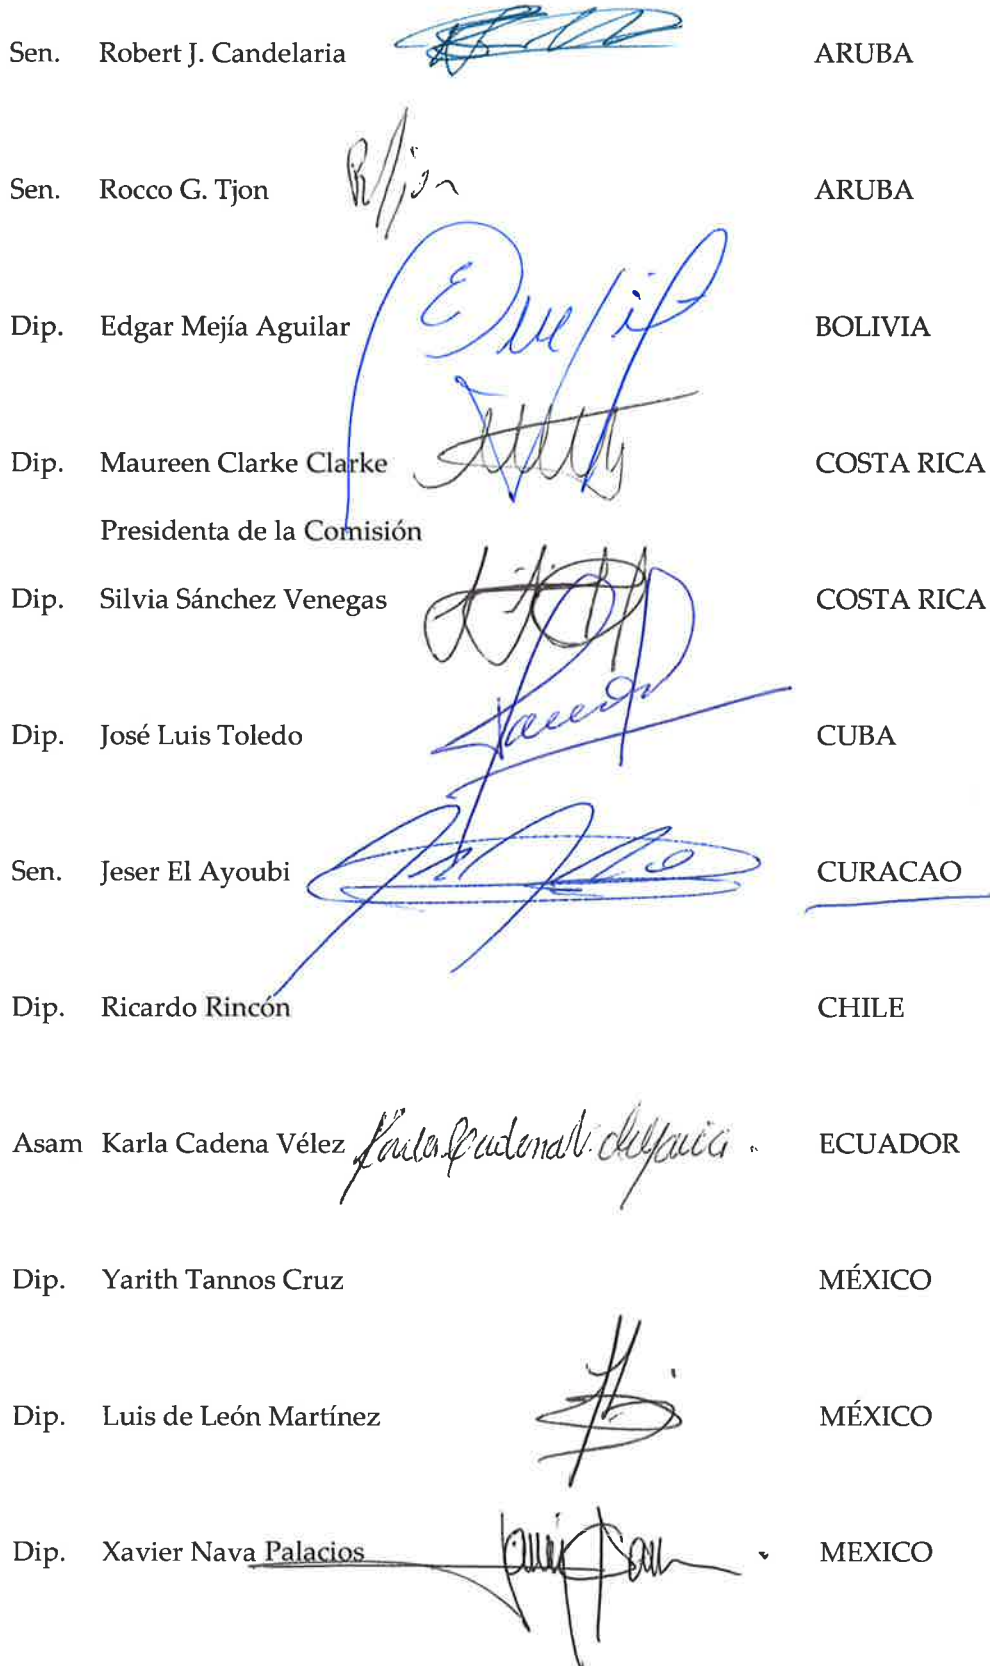 Sen. Robert J. Candelaria ARUBA
Sen. Rocco G. Tjon RTjon ARUBA
Dip. Edgar Mejía Aguilar BOLIVIA
Dip. Maureen Clarke Clarke COSTA RICA
Presidenta de la Comisión
Dip. Silvia Sánchez Venegas COSTA RICA
Dip. José Luis Toledo CUBA
Sen. Jeser El Ayoubi CURACAO
Dip. Ricardo Rincón CHILE
Asam Karla Cadena Vélez ECUADOR
Dip. Yarith Tannos Cruz MÉXICO
Dip. Luis de León Martínez MÉXICO
Dip. Xavier Nava Palacios MEXICO